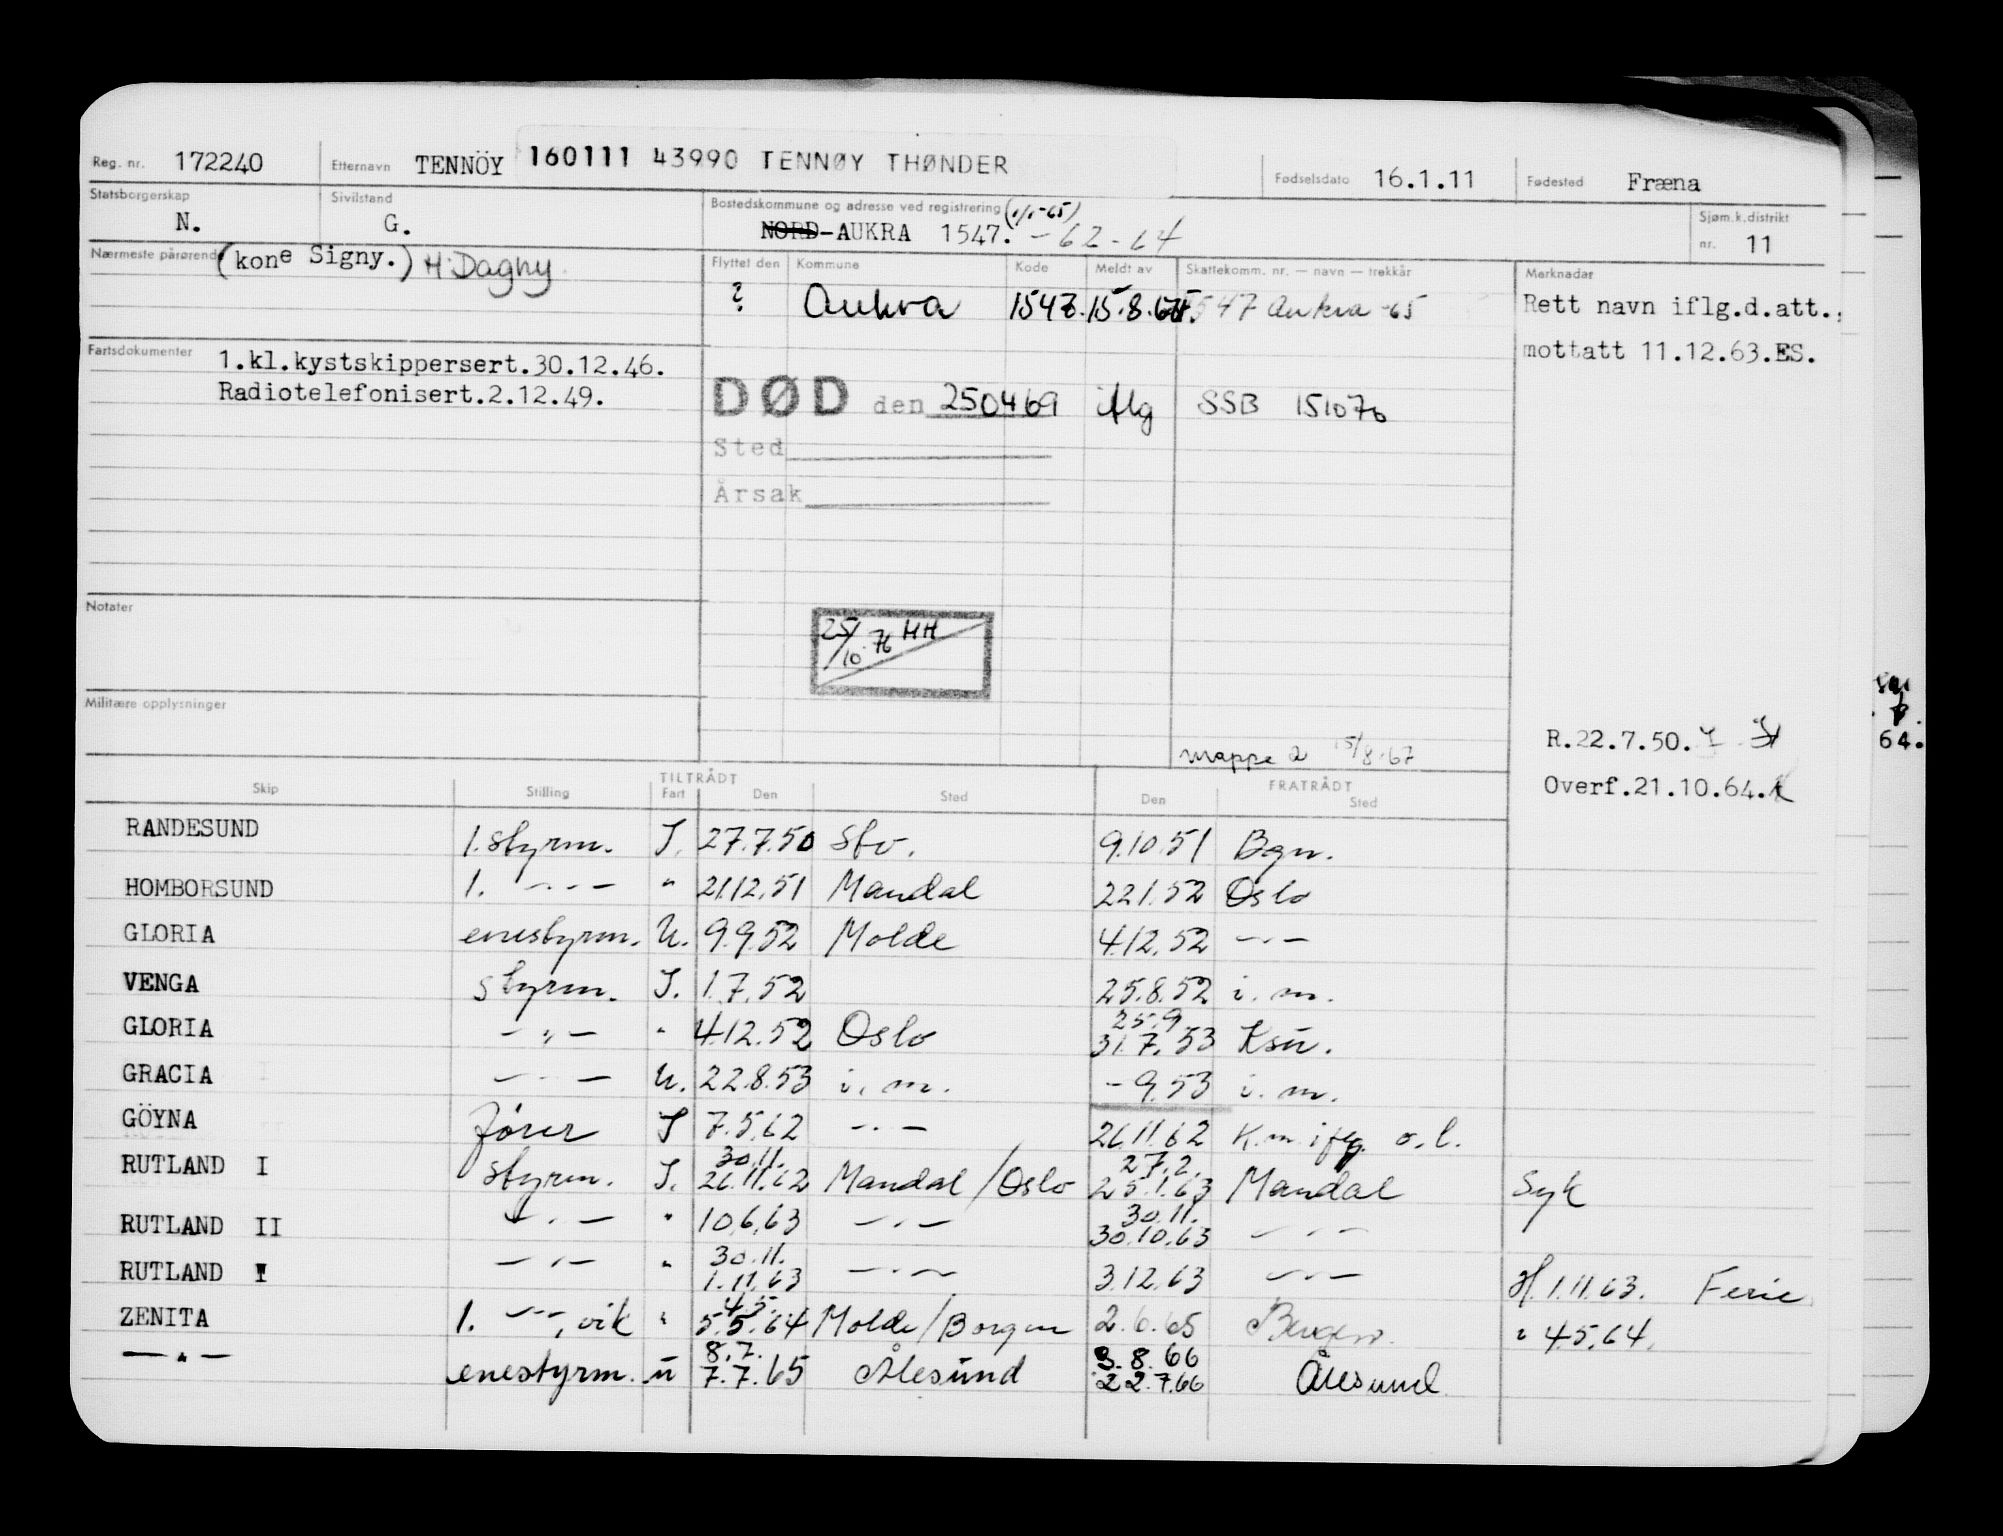 Reg. nr. 172240 Etternavn TENNÖY 160111 43990 TENNØY THØNDER Fødselsdato 16.1.11 Fødested Fræna
Statsborgerskap N. Sivilstand G. Bostedskommune og adresse ved registrering (1/1-65) Sjøm.k.distrikt
NORD-AUKRA 1547. -62-64 nr. 11
Nærmeste pårørende (kone Signy.) H Dagny
Flyttet den Kommune Kode Meldt av Skattekomm. nr. — navn — trekkår Merknader
? Aukra 1547. 15.8.67 1547 Aukra -65 Rett navn iflg.d.att.,
mottatt 11.12.63.ES.
Fartsdokumenter 1.kl.kystskippersert.30.12.46.
Radiotelefonisert.2.12.49.
DØD den 250469 iflg SSB 151070
Sted
Årsak
Notater
25/10 76 HH
Militære opplysninger
R.22.7.50.
mappe 2 15/8.67
Overf.21.10.64.
64.
TILTRÅDT FRATRÅDT
Skip Stilling Fart Den Sted Den Sted
RANDESUND 1.styrm. I. 27.7.50 Stv. 9.10.51 Bgn.
HOMBORSUND 1. —"— " 21.12.51 Mandal 22.1.52 Oslo
GLORIA enestyrm. U. 9.9.52 Molde 4.12.52 —"—
VENGA styrm. I. 1.7.52 25.8.52 i.m.
GLORIA —"— " 4.12.52 Oslo 25.9 31.7.53 Ksu.
GRACIA —"— U. 22.8.53 i.m. -9.53 i.m.
GÖYNA fører I 7.5.62 —"— 26.11.62 K.m iflg. o.l.
RUTLAND I styrm. I. 30.11. 26.11.62 Mandal/Oslo 27.2. 25.1.63 Mandal Syk
RUTLAND II —"— " 10.6.63 —"— 30.11. 30.10.63 —"—
RUTLAND I —"— " 30.11. 1.11.63 —"— 3.12.63 —"— H. 1.11.63. Ferie
ZENITA 1. —"—, vik " 4.5. 5.5.64 Molde/Borgen 2.6.65 Bergen. " 4.5.64.
—"— enestyrm. u 8.7. 7.7.65 Ålesund 3.8.66 22.7.66 Ålesund